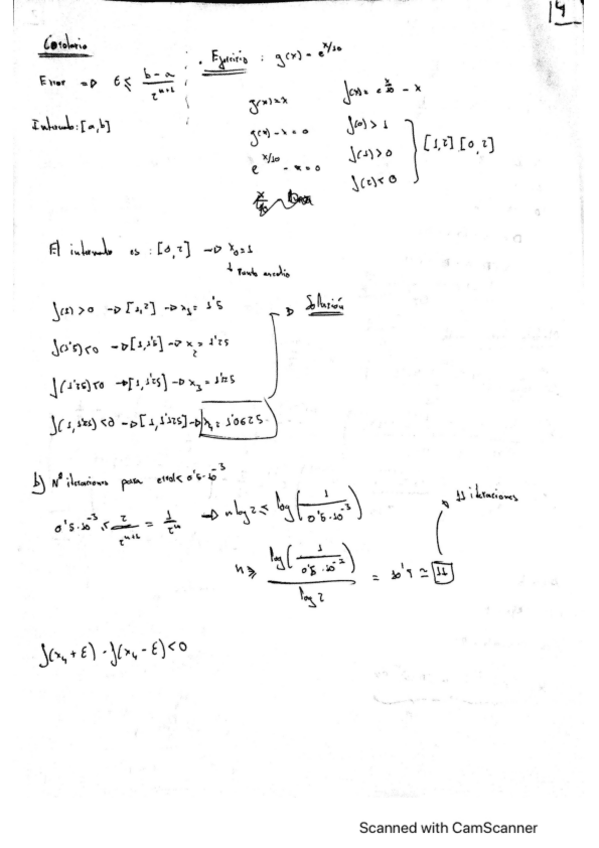 4
Corolario
Error => ε ≤ (b-a)/2^(n+1)
Intervalo: [a,b]
• Ejercicio : g(x) = e^(x/10)
g(x)=x
g(x) - x = 0
e^(x/10) - x = 0
f(x) = e^(x/10) - x
f(0) > 1
f(1) > 0
f(2) < 0
[1,2] [0,2]
El intervalo es : [0,2] → x₀=1
↓ Punto medio
f(1)>0 → [1,2] → x₁= 1'5
f(1'5)<0 → [1,1'5] → x₂ = 1'25
f(1'25)<0 → [1,1'25] → x₃ = 1'125
f(1,125)<0 → [1,1'125] → x₄ = 1'0625
→ Solución
b) Nº iteraciones para error < 0'5·10⁻³
0'5·10⁻³ 2/2^(n+1) = 1/2^n → n log 2 ≤ log(1/(0'5·10⁻³))
n ≥ log(1/(0'5·10⁻³)) / log 2 = 10'9 ≃ 11
→ 11 iteraciones
f(x₄+ε) · f(x₄-ε) < 0
Scanned with CamScanner